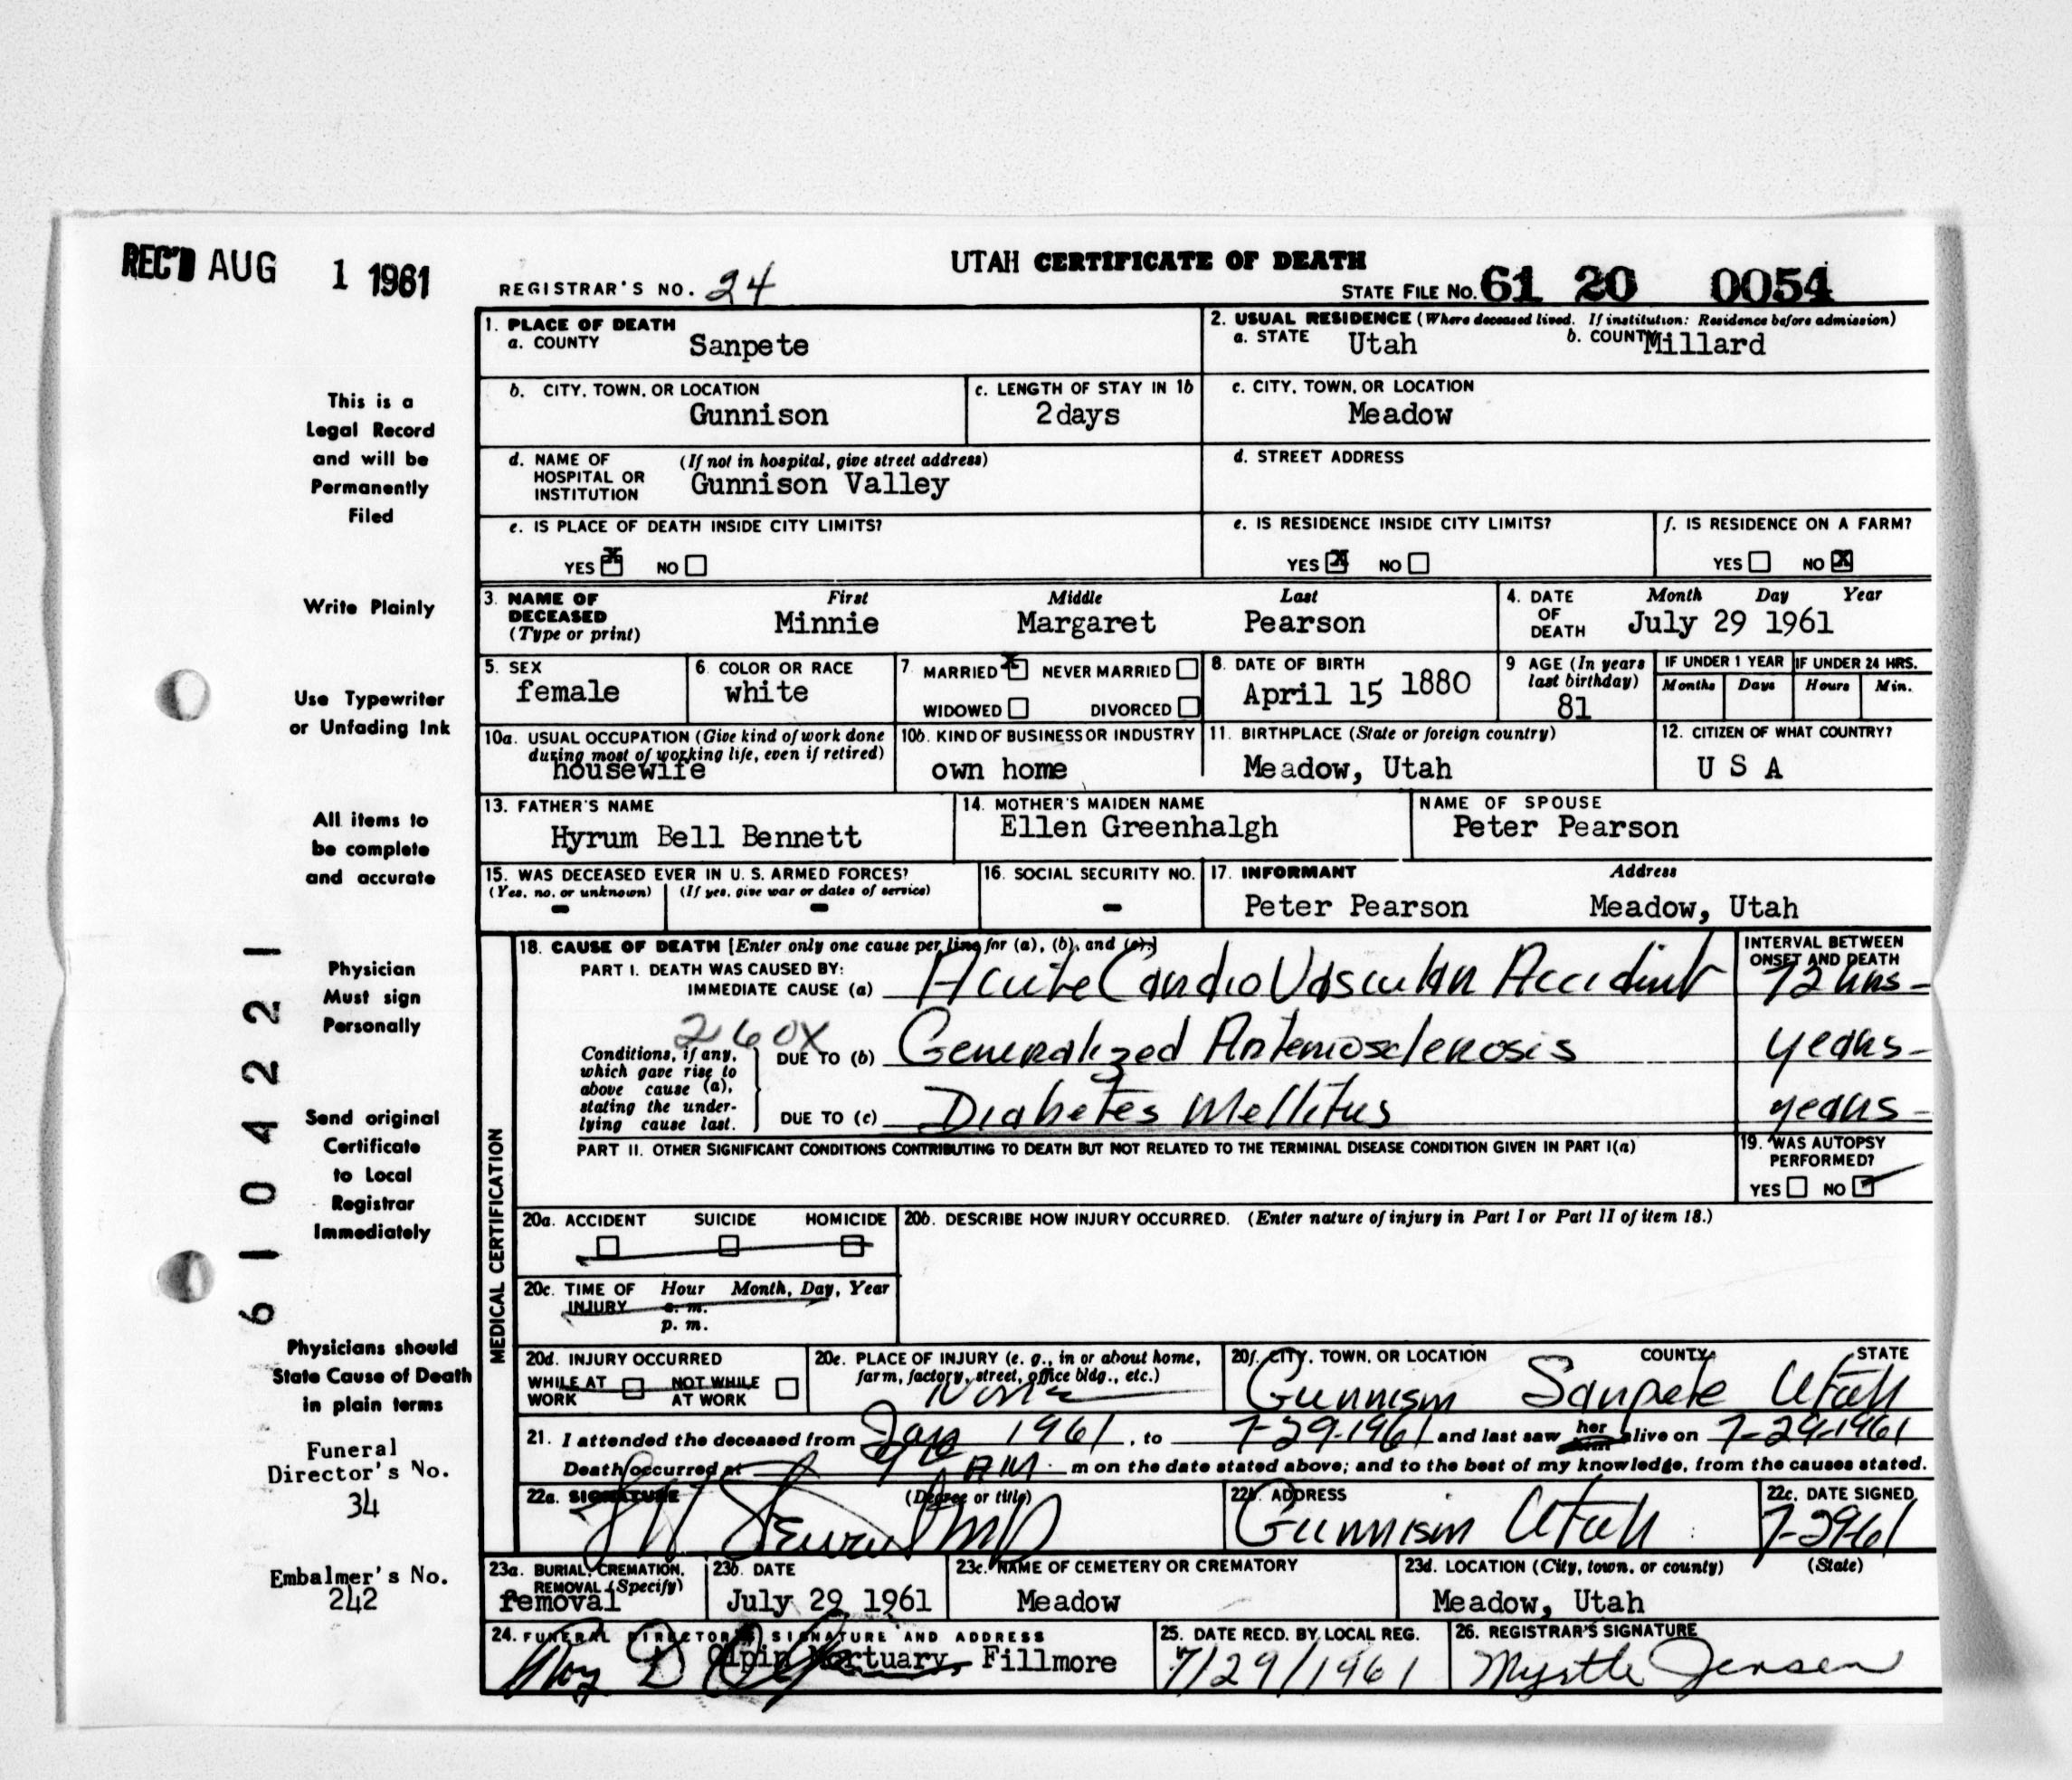 REC'D AUG 1 1961
UTAH CERTIFICATE OF DEATH
REGISTRAR'S NO. 24
STATE FILE NO. 61 20 0054
This is a
Legal Record
and will be
Permanently
Filed
Write Plainly
Use Typewriter
or Unfading Ink
All items to
be complete
and accurate
Physician
Must sign
Personally
Send original
Certificate
to Local
Registrar
Immediately
Physicians should
State Cause of Death
in plain terms
Funeral
Director's No.
34
Embalmer's No.
242
6104221
1. PLACE OF DEATH
a. COUNTY Sanpete
2. USUAL RESIDENCE (Where deceased lived. If institution: Residence before admission)
a. STATE Utah b. COUNTY Millard
b. CITY, TOWN, OR LOCATION
Gunnison
c. LENGTH OF STAY IN 1b
2days
c. CITY, TOWN, OR LOCATION
Meadow
d. NAME OF (If not in hospital, give street address)
HOSPITAL OR
INSTITUTION Gunnison Valley
d. STREET ADDRESS
e. IS PLACE OF DEATH INSIDE CITY LIMITS?
YES x NO
e. IS RESIDENCE INSIDE CITY LIMITS?
YES X NO
f. IS RESIDENCE ON A FARM?
YES NO X
3. NAME OF DECEASED (Type or print)
First Middle Last
Minnie Margaret Pearson
4. DATE OF DEATH
Month Day Year
July 29 1961
5. SEX
female
6. COLOR OR RACE
white
7. MARRIED x NEVER MARRIED
WIDOWED DIVORCED
8. DATE OF BIRTH
April 15 1880
9 AGE (In years last birthday)
81
IF UNDER 1 YEAR IF UNDER 24 HRS.
Months Days Hours Min.
10a. USUAL OCCUPATION (Give kind of work done
during most of working life, even if retired)
housewife
10b. KIND OF BUSINESS OR INDUSTRY
own home
11. BIRTHPLACE (State or foreign country)
Meadow, Utah
12. CITIZEN OF WHAT COUNTRY?
U S A
13. FATHER'S NAME
Hyrum Bell Bennett
14. MOTHER'S MAIDEN NAME
Ellen Greenhalgh
NAME OF SPOUSE
Peter Pearson
15. WAS DECEASED EVER IN U. S. ARMED FORCES?
(Yes, no, or unknown) (If yes, give war or dates of service)
- -
16. SOCIAL SECURITY NO.
-
17. INFORMANT Address
Peter Pearson Meadow, Utah
MEDICAL CERTIFICATION
18. CAUSE OF DEATH [Enter only one cause per line for (a), (b), and (c).]
INTERVAL BETWEEN
ONSET AND DEATH
PART I. DEATH WAS CAUSED BY:
IMMEDIATE CAUSE (a) Acute Cardio Vascular Accident 72 hrs-
260X
Conditions, if any,
which gave rise to
above cause (a),
stating the under-
lying cause last.
DUE TO (b) Generalized Arteriosclerosis years-
DUE TO (c) Diabetes Mellitus years-
PART II. OTHER SIGNIFICANT CONDITIONS CONTRIBUTING TO DEATH BUT NOT RELATED TO THE TERMINAL DISEASE CONDITION GIVEN IN PART I(a)
19. WAS AUTOPSY
PERFORMED?
YES NO
20a. ACCIDENT SUICIDE HOMICIDE
20b. DESCRIBE HOW INJURY OCCURRED. (Enter nature of injury in Part I or Part II of item 18.)
20c. TIME OF Hour Month, Day, Year
INJURY a. m.
p. m.
20d. INJURY OCCURRED
WHILE AT WORK NOT WHILE AT WORK
20e. PLACE OF INJURY (e. g., in or about home,
farm, factory, street, office bldg., etc.)
None
20f. CITY, TOWN, OR LOCATION COUNTY STATE
Gunnison Sanpete Utah
21. I attended the deceased from Jan 1961, to 7-29-1961 and last saw her him alive on 7-29-1961
Death occurred at AM. m on the date stated above; and to the best of my knowledge, from the causes stated.
22a. SIGNATURE (Degree or title)
MD
22b. ADDRESS
Gunnison Utah
22c. DATE SIGNED
7-29-61
23a. BURIAL, CREMATION,
REMOVAL (Specify)
removal
23b. DATE
July 29 1961
23c. NAME OF CEMETERY OR CREMATORY
Meadow
23d. LOCATION (City, town, or county) (State)
Meadow, Utah
24. FUNERAL DIRECTOR'S SIGNATURE AND ADDRESS
Olpin Mortuary, Fillmore
25. DATE RECD. BY LOCAL REG.
7/29/1961
26. REGISTRAR'S SIGNATURE
Myrtle Jensen